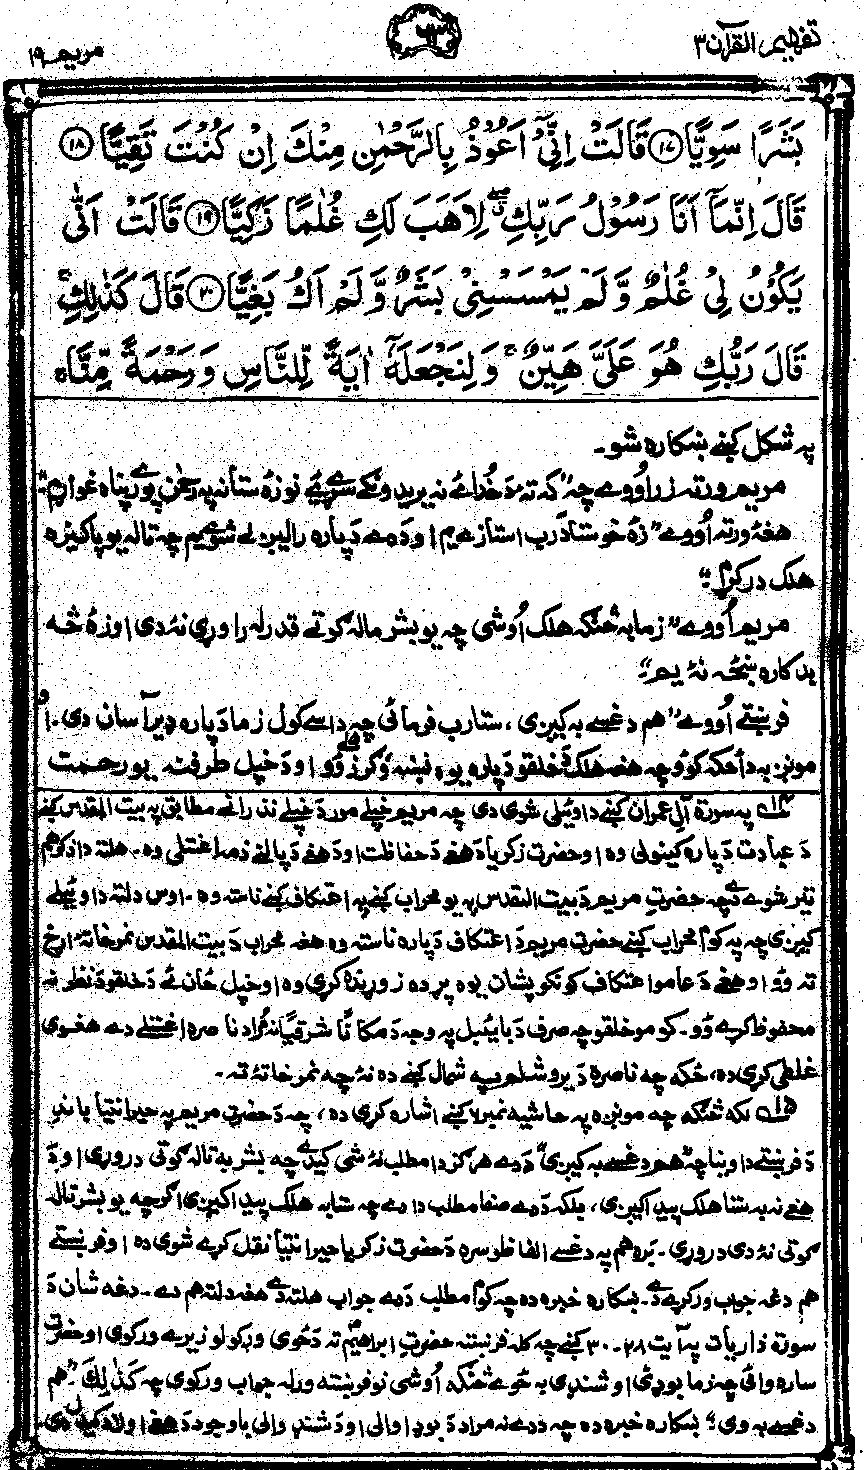 تفهیم القرآن ۳
۶۳
مریم ۱۹
بَشَرًا سَوِيًّا ﴿۱۷﴾ قَالَتْ اِنِّيْٓ اَعُوْذُ بِالرَّحْمٰنِ مِنْكَ اِنْ كُنْتَ تَقِيًّا ﴿۱۸﴾
قَالَ اِنَّمَآ اَنَا رَسُوْلُ رَبِّكِ ۖ لِاَهَبَ لَكِ غُلٰمًا زَكِيًّا ﴿۱۹﴾ قَالَتْ اَنّٰى
يَكُوْنُ لِيْ غُلٰمٌ وَّلَمْ يَمْسَسْنِيْ بَشَرٌ وَّلَمْ اَكُ بَغِيًّا ﴿۲۰﴾ قَالَ كَذٰلِكِ ۚ
قَالَ رَبُّكِ هُوَ عَلَيَّ هَيِّنٌ ۚ وَلِنَجْعَلَهٗٓ اٰيَةً لِّلنَّاسِ وَرَحْمَةً مِّنَّا ۚ
په شکل کښے ښکاره شو۔
مریم ورته زر اُووے چہ "که ته دَ خُدائے نه یریدونکے سړے ئے نو زهٔ ستا نه په رحمٰن پورے پناه غواړم"
هغهٔ ورته اُووے "زهٔ خو ستا دَ رب استازے یم او دَ دے دَپاره رالیږلے شوے یم چه تاله یو پاکیزه
هلک درکړم"
مریم اُووے "زما به څنګه هلک اُوشی چه یو بشر ماله ګوتے قدرله راوړی نهٔ دی او زهٔ څه
بدکاره ښځه نهٔ یم"
فرښتے اُووے "هم دغسے به کیږی، ستا رب فرمائی چه داسے کول زما دَپاره ډیر آسان دی۔ اُو
مونږ به دا ځکه کوؤ چه هغه هلک دَ خلقو دَپاره یوه نښه وګرزؤو او دَ خپل طرفنه یو رحمت
په سورة آلِ عمران کښے دا وئیلی شوی دی چه مریم خپلے مور دَ خپلے نذرانے مطابق په بیت المقدس کښے
دَ عبادت دَپاره کینولی وه او حضرت زکریا دَ هغے دَ حفاظت او دَ هغے دَ پالنے ذمه اغستلی وه۔ هلته دا ذکر هم
تیر شوے دے چه حضرت مریم دَ بیت المقدس په یو محراب کښے په اعتکاف کښے ناسته وه۔ اوس دلته دا وئیلے
کیږی چه په کوم محراب کښے حضرت مریم دَ اعتکاف دَپاره ناسته وه هغه محراب دَ بیت المقدس نمرخاتهٔ اړخ
ته وُو او هغے دَ عامو اعتکاف کونکو پشان یوه پرده زوړنده کړی وه او خپل ځان ئے دَ خلقو دَ نظر نه
محفوظ کړے وُو۔ کومو خلقو چه صرف دَ بائیبل په وجه دَ مکانًا شرقیًا نه مُراد ناصره اغستلے دے هغوی
غلطی کړی ده، ځکه چه ناصره دَ یروشلم په شمال کښے ده نهٔ چه نمرخاتهٔ ته۔
لکه څنګه چه مونږه په حاشیه نمبر ۶ کښے اشاره کړی ده، چه دَ حضرت مریم په حیرانتیا باندے
دَ فرښتے دا وینا چه هم دغسے به کیږی" دَ دے هرګز دا مطلب نهٔ شی کیدے چه بشر به تاله ګوتی دروړی او دَ
هغے نه به ستا هلک پیدا کیږی، بلکه دَ دے صفا مطلب دا دے چه ستا به هلک پیدا کیږی اګرچه یو بشر تاله
ګوتی نهٔ دی دروړی۔ بره هم په دغسے الفاظو سره دَ حضرت زکریا حیرانتیا نقل کړے شوی ده او فرښتے
هم دغه جواب ورکړے دے۔ ښکاره خبره ده چه کوم مطلب دَ دے جواب هلته دے هغه دلته هم دے۔ دغه شان دَ
سورة ذاریات په آیت ۲۸۔۳۰ کښے چه کله فرښته حضرت ابراهیمؑ ته دَ ځوی ورکولو زیرے ورکوی او حضرت
ساره وائی چه زما بوډئ او شنډی به ځوے څنګه اُوشی نو فرښته ورله جواب ورکوی چه كَذٰلِكَ "هم
دغسے به وی" ښکاره خبره ده چه دَ دے نه مراد دَ بوډاوالی او دَ شنډوالی باوجود دَ هغے اولاد کیدل دی